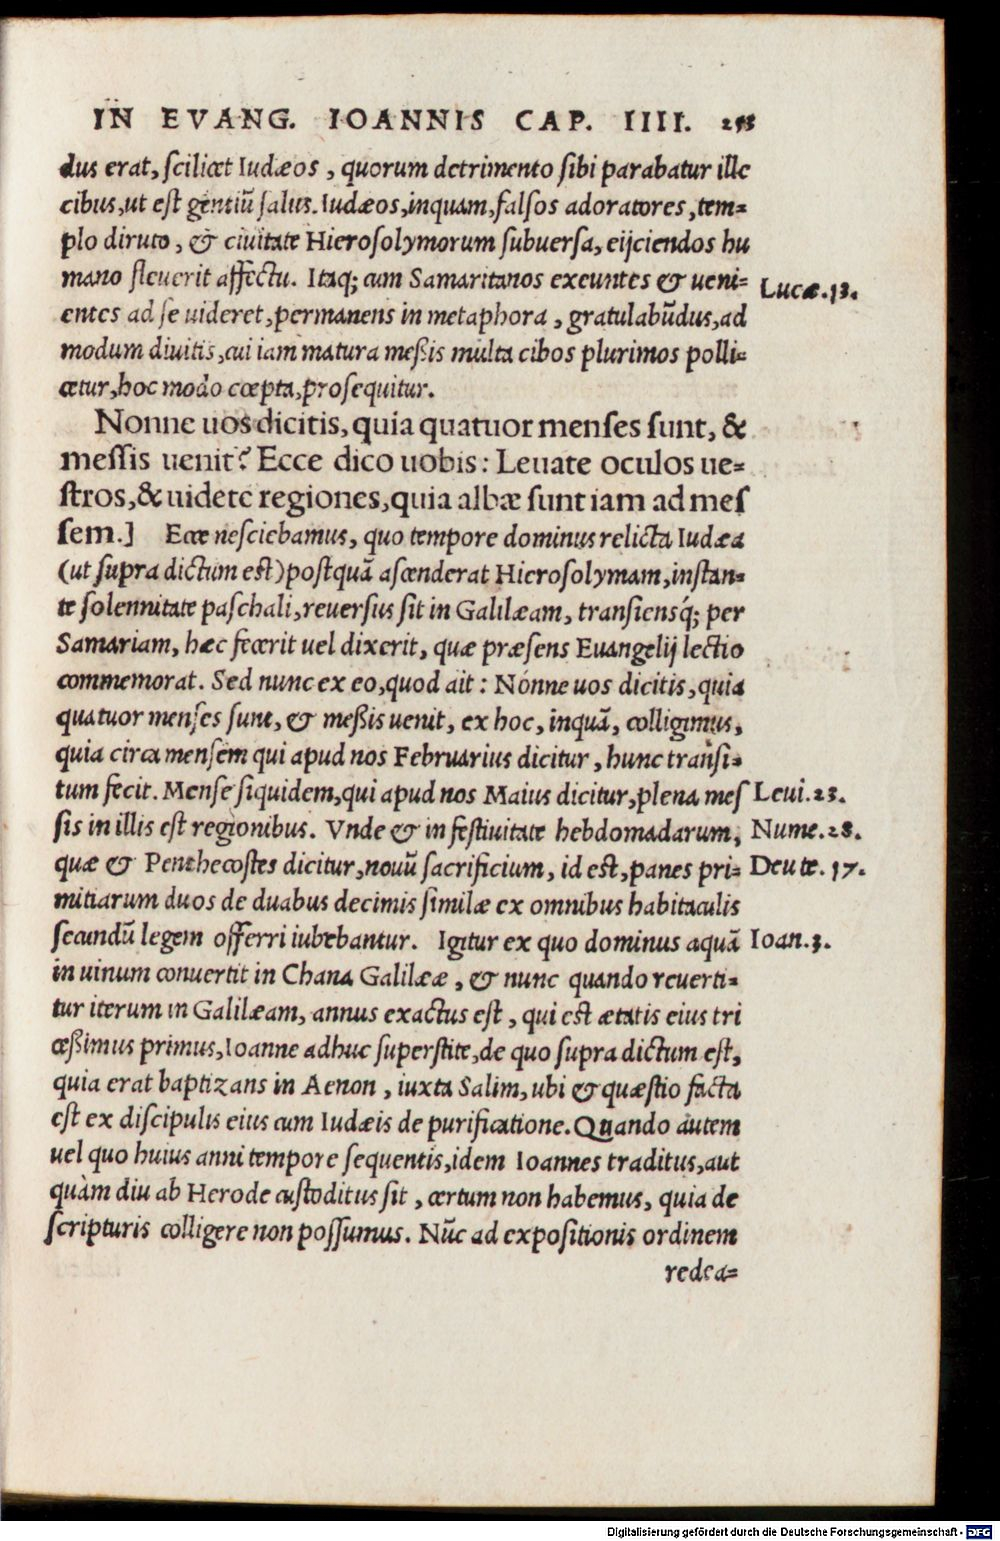 IN EVANG. IOANNIS CAP. IIII.
dus erat, scilicet Iudæos, quorum detrimento sibi parabatur ille
cibus, ut est gentiū salus. Iudæos, inquam, falsos adoratores, tem-
plo diruto, & ciuitate Hierosolymorum subuersa, eijciendos hu
mano fleuerit affectu. Itaq; cum Samaritanos exeuntes & ueni-
Lucæ. 13.
entes ad se uideret, permanens in metaphora, gratulabūdus, ad
modum diuitis, cui iam matura meßis multa cibos plurimos polli-
cetur, hoc modo cœpta, prosequitur.
Nonne uos dicitis, quia quatuor menses sunt, &
messis uenit? Ecce dico uobis: Leuate oculos ue-
stros, & uidete regiones, quia albæ sunt iam ad mes
sem.] Ecce nesciebamus, quo tempore dominus relicta Iudæa
(ut supra dictum est) postquā ascenderat Hierosolymam, instan-
te solennitate paschali, reuersus sit in Galilæam, transiensq́; per
Samariam, hæc fecerit uel dixerit, quæ præsens Euangelij lectio
commemorat. Sed nunc ex eo, quod ait: Nónne uos dicitis, quia
quatuor menses sunt, & meßis uenit, ex hoc, inquā, colligimus,
quia circa mensem qui apud nos Februarius dicitur, hunc transi-
tum fecit. Mense siquidem, qui apud nos Maius dicitur, plena mes
Leui. 23.
sis in illis est regionibus. Vnde & in festiuitate hebdomadarum,
Nume. 28.
quæ & Penthecostes dicitur, nouū sacrificium, id est, panes pri-
Deute. 17.
mitiarum duos de duabus decimis similæ ex omnibus habitaculis
secundū legem offerri iubebantur. Igitur ex quo dominus aquā
Ioan. 3.
in uinum conuertit in Chana Galilææ, & nunc quando reuerti-
tur iterum in Galilæam, annus exactus est, qui est ætatis eius tri
ceßimus primus, Ioanne adhuc superstite, de quo supra dictum est,
quia erat baptizans in Aenon, iuxta Salim, ubi & quæstio facta
est ex discipulis eius cum Iudæis de purificatione. Quando autem
uel quo huius anni tempore sequentis, idem Ioannes traditus, aut
quàm diu ab Herode custoditus sit, certum non habemus, quia de
scripturis colligere non possumus. Nūc ad expositionis ordinem
redea-
Digitalisierung gefördert durch die Deutsche Forschungsgemeinschaft - DFG